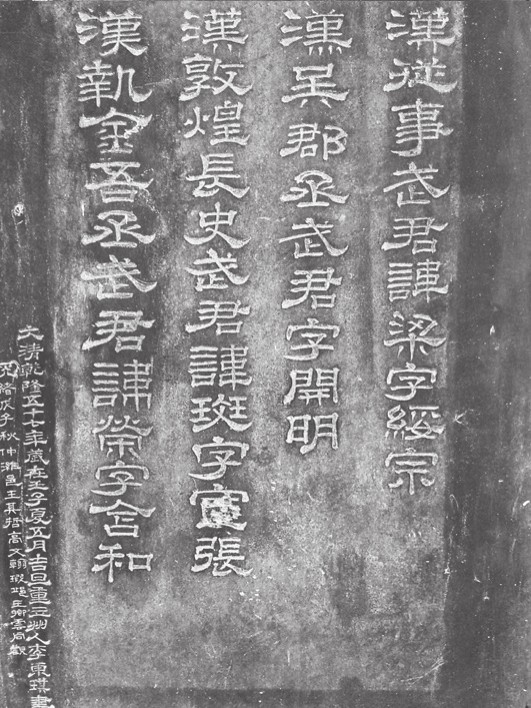 漢從事武君諱梁字綏宗
漢吳郡丞武君字開明
漢敦煌長史武君諱斑字宣張
漢執金吾丞武君諱榮字含和
大清乾隆五十七年歲在壬子夏五月吉旦重立州人李東琪書
光緒戊子秋仲濰邑王 哲高文翰 同觀